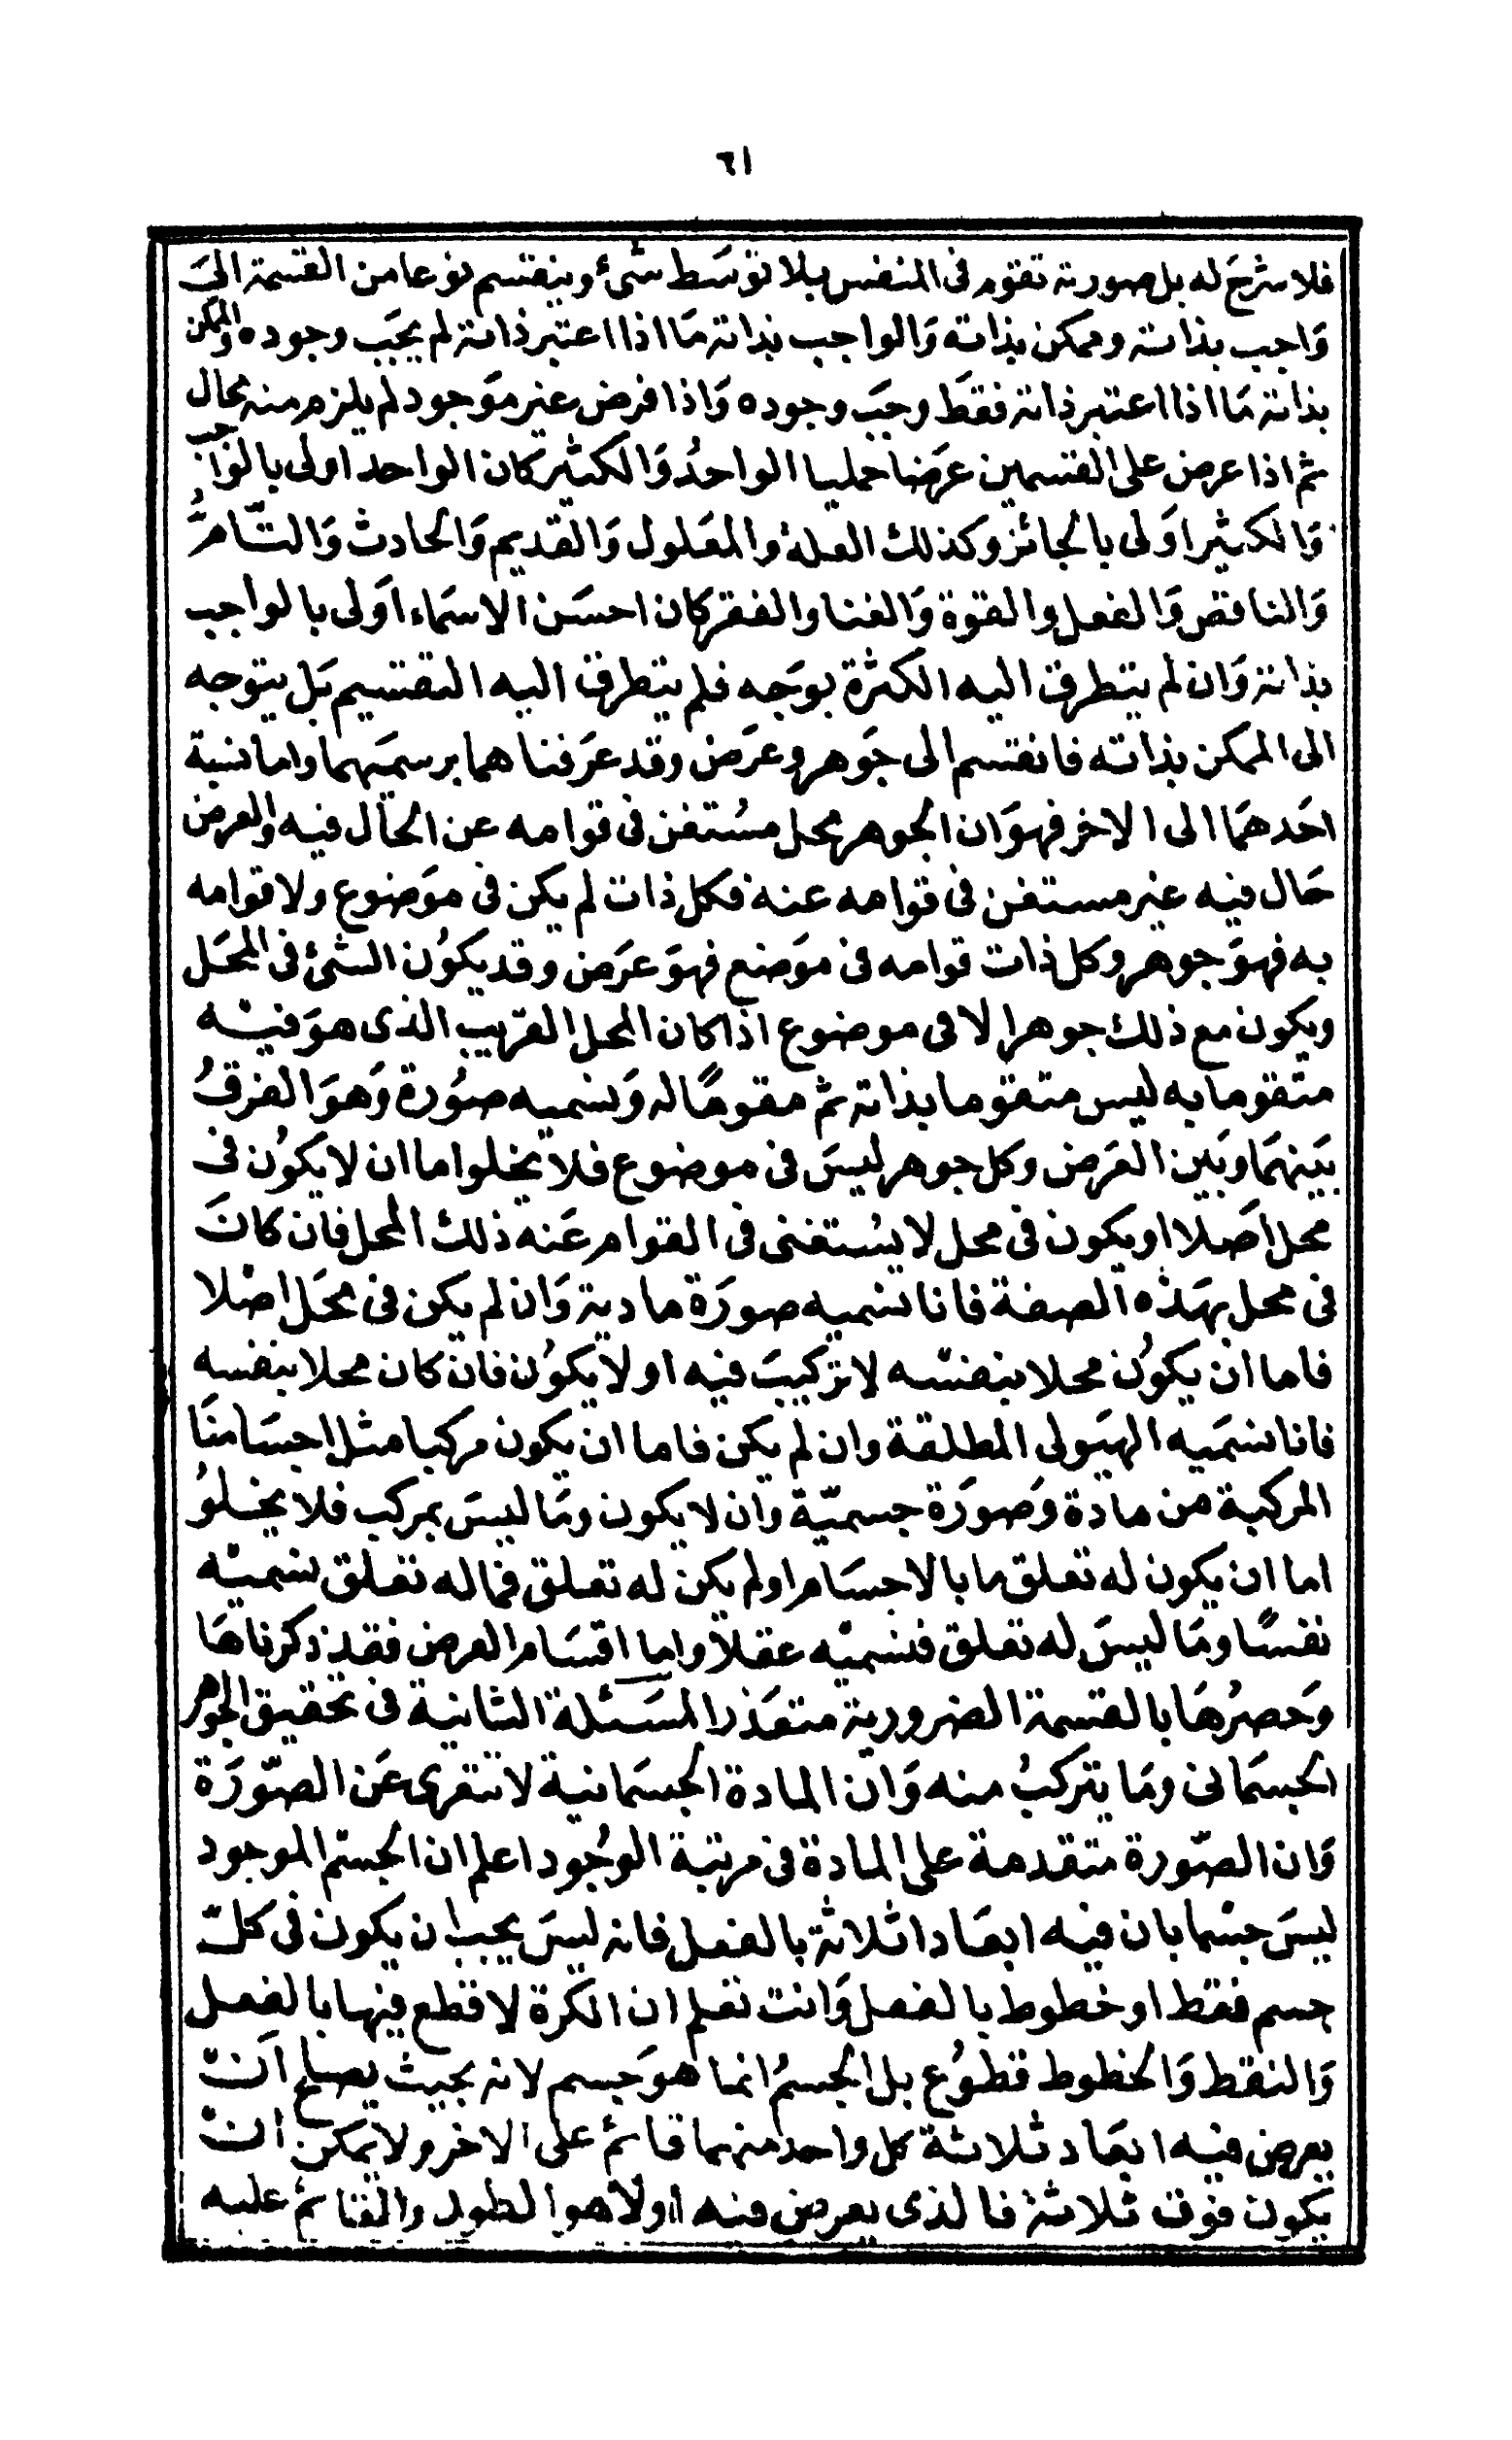 ٦١
فلا شرح له بل صورته تقوم فى النفس بلا توسَط شئ وينقسم نوعا من القسمة الىَ
وَاجب بذاته وممكن بذاته وَالواجب بذاته مَا اذا اعتبر ذاته لم يجَب وجوده والممكن
بذاته مَا اذا اعتبر ذاته فقطَ وجبَ وجوده وَاذا فرض غير موَجود لم يلزم منه محال
ثم اذا عرض على القسمين عرَضا حمليا الواحدُ وَالكثير كان الواحد اولى بالواجب
وَالكثير اوَلى بالجائز وكذلك العلة والمعَلول وَالقديم وَالحادث وَالتّامُّ
وَالناقص وَالفعل والقوة وَالغنا والفقر كان احسَن الاسمَاء اوَلى بالواجب
بذاته وَان لم يتطرق اليه الكثرة بوَجه فلم يتطرق اليه التقسيم بَل يتوجه
الى الممكن بذاته فانقسم الى جَوهر وعرَض وقد عرَفناهما برسميَهما واما نسبة
احَدهمَا الى الاخر فهوَان الجوهر محل مسُتغن فى قوامه عن الحاَل فيه والعرض
حَال فيه غير مستغن فى قوامه عنه فكل ذات لم يكن فى موَضوع ولا قوامه
به فهوَ جوهر وكل ذات قوامه فى موَضع فهوَ عرَض وقد يكوُن الشئ فى المحَل
ويكون مع ذلك جوهرا لا فى موضوع اذا كان المحل القريب الذى هوَ فيْه
متقوما به ليس متقوما بذاته ثم مقومًا له وَنسميه صوُرة وَهوَ الفرقُ
بيَنهمَا وبَين العَرض وكل جوهر ليسَ فى موضوع فلا يخلوا ما ان لا يكوُن فى
محل اصَلا او يكون فى محل لا يسُتغنى فى القوام عَنه ذلك المحل فان كانَ
فى محل بهَذه الصفة فانا نسميه صورَة مادية وَان لم يكن فى محَل اصْلا
فاما ان يكوُن محلا بنفسْه لا تركيبَ فيه او لا يكوُن فان كان محلا بنفسه
فانا نسمَيه الهيَولى المطلقة وان لم يكن فاما ان يكون مركبا مثل اجسَامنَا
المركبة من مادة وَصورَة جسميّة وان لا يكون ومَا ليسَ بمركب فلا يخلوُ
اما ان يكون له تعلق ما بالاجسَام او لم يكن له تعلق فما له تعلق نسميْه
نفسًا ومَا ليسَ له تعلق فنسميْه عقلاً واما اقسَام العرض فقد ذكرناهَا
وَحصرُهَا بالقسمة الضرورية متعَذر المسَئلة الثانية فى تحقيق الجوهر
الجسمَانى ومَا يتركبُ منه وَان المادة الجسمَانية لا تتعرى عَن الصّورَة
وَان الصّورة متقدمة على المادة فى مرتبة الوجُود اعلم ان الجسْم الموجود
ليسَ جسْما بان فيه ابعَادا ثلاثة بالفعل فانه ليسَ يجب ان يكون فى كلّ
جسم نقط او خطوط بالفعل وَانت تعلم ان الكرة لا قطع فيها بالفعل
وَالنقط وَالخطوط قطوُع بل الجسمُ انما هوَ جسم لانه بحيث يصلح انَْ
يعرض فيه ابعَاد ثلاثة كل واحد منها قائم على الاخر ولا يمكن انْ
يكون فوق ثلاثة فالذى يعرض فيه اولاً هو الطول والقائم عليه